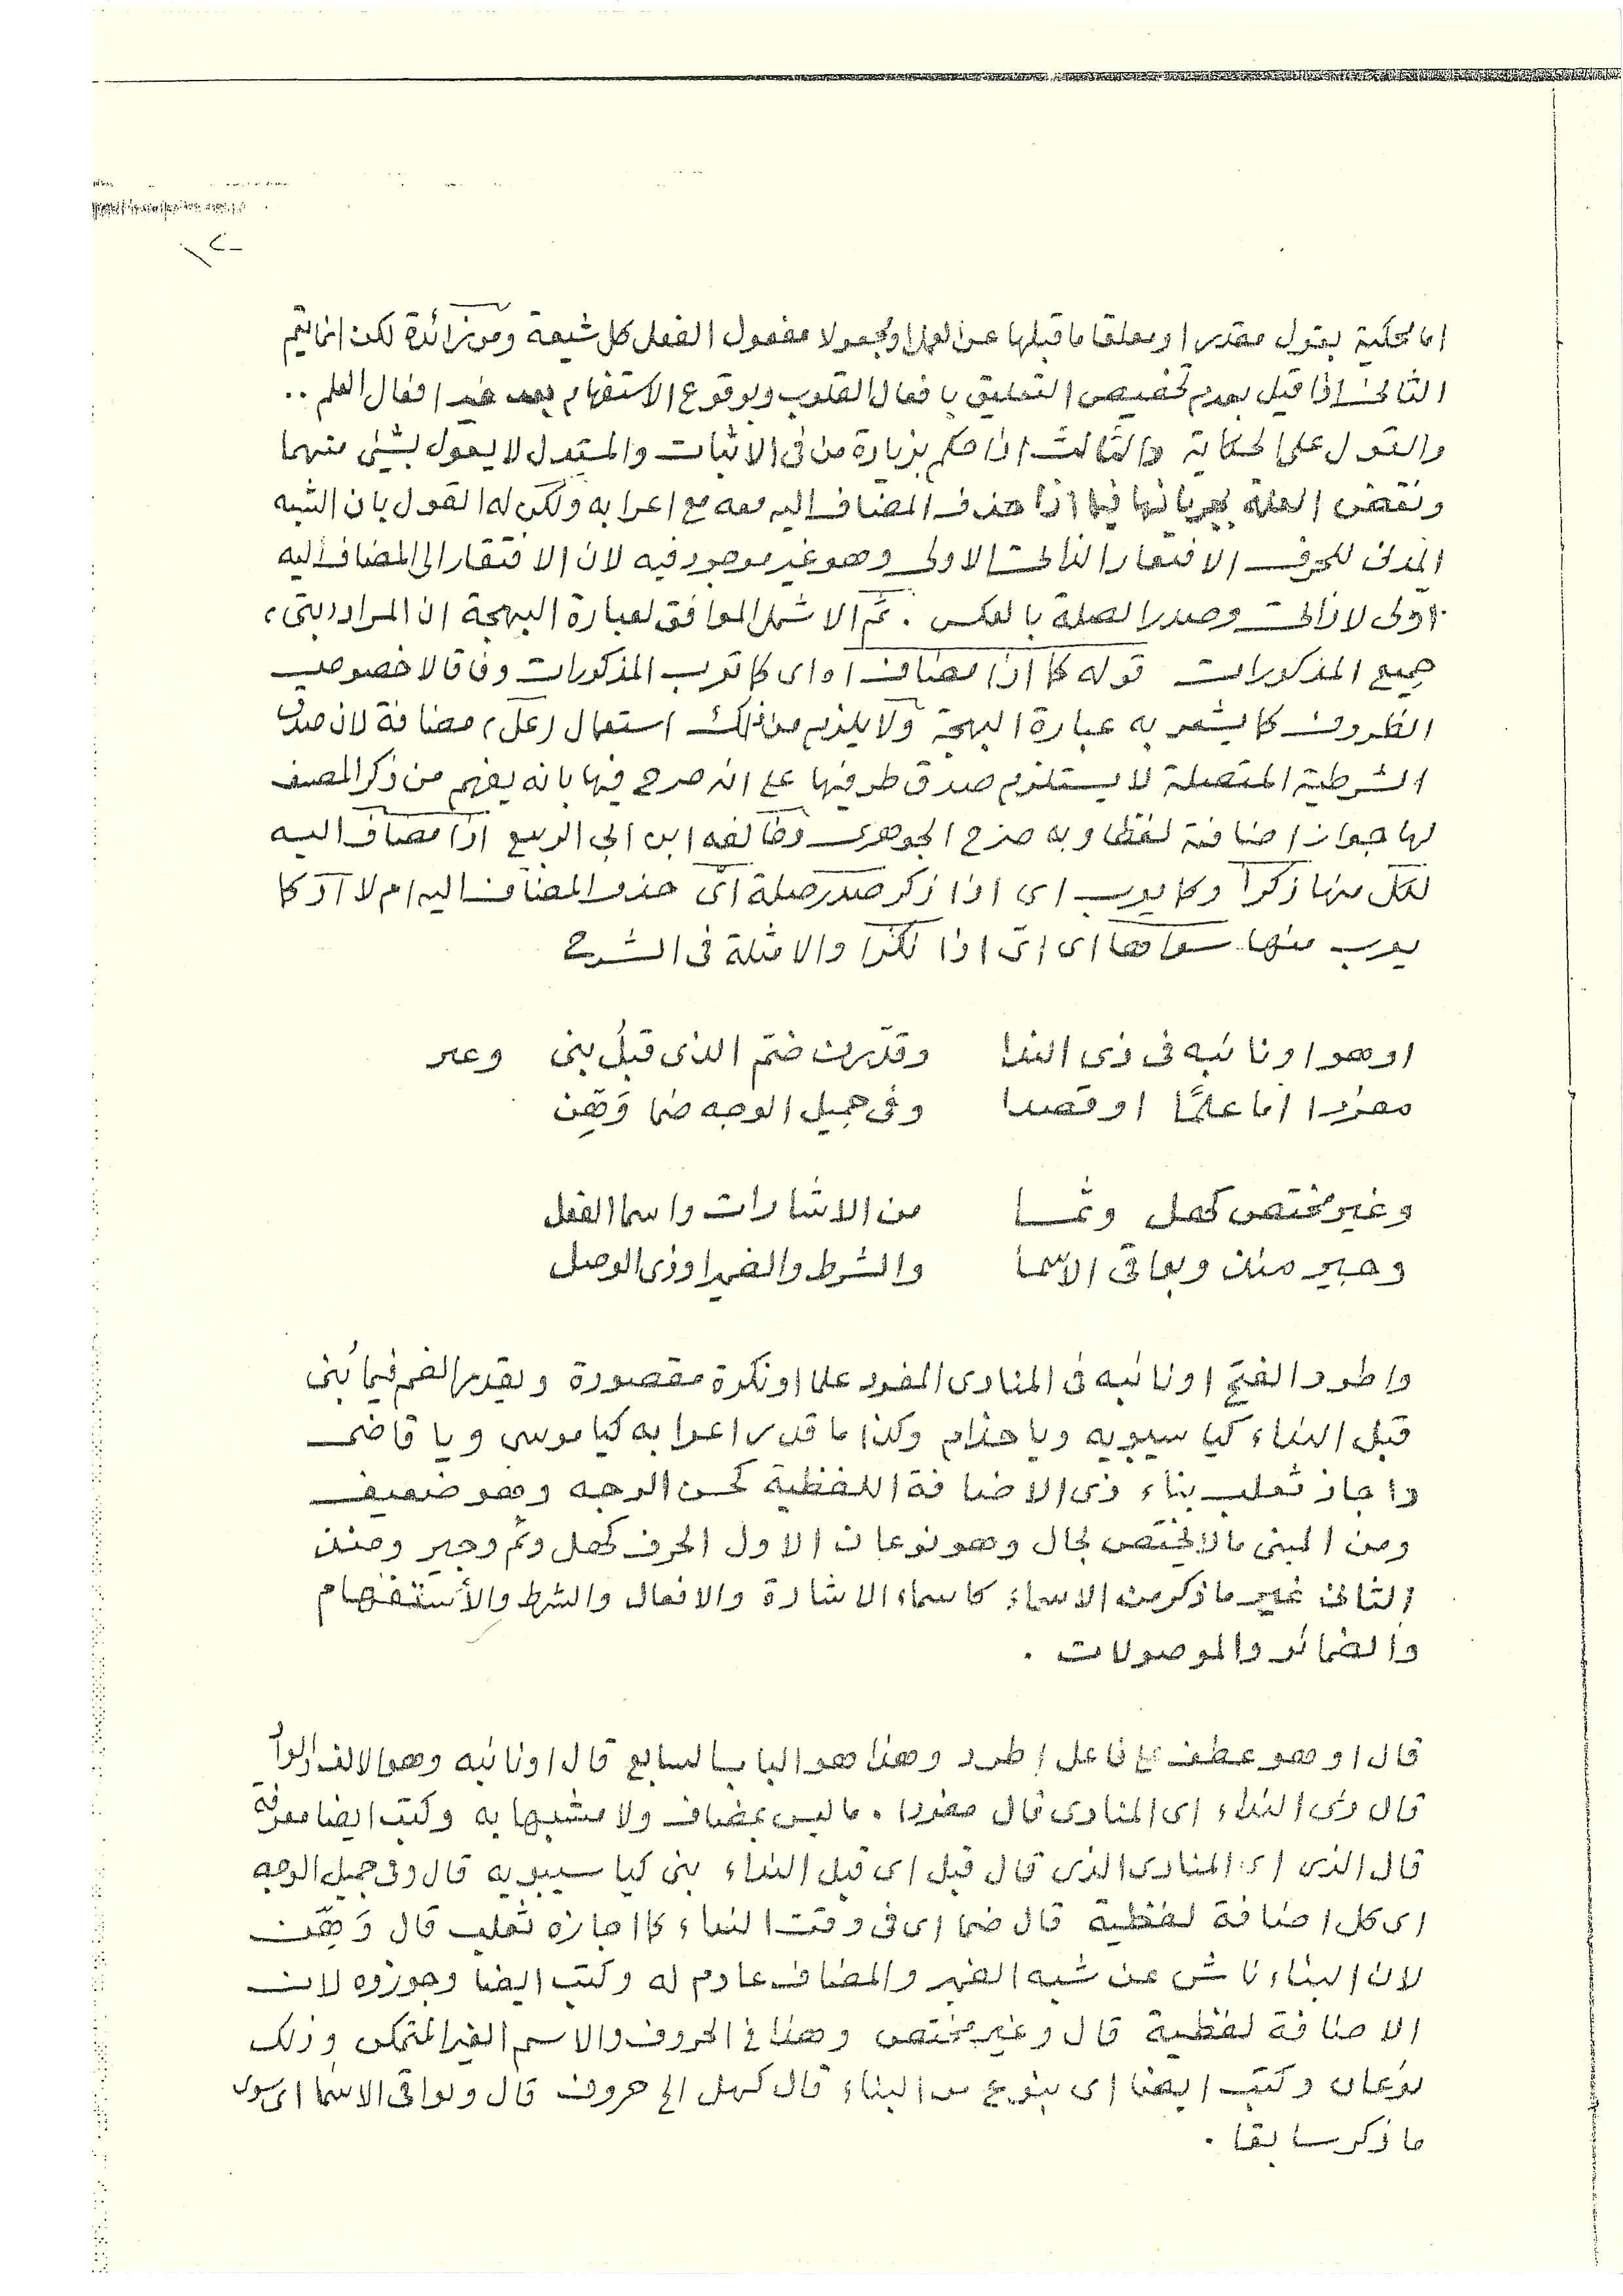 اما محكية بقول مقدر او معلقا ما قبلها عن العمل او مجعولا مفعول الفعل كل شيعة ومن زائدة لكن انما يتم
الثانى اذا قيل بعدم تخصيص التعليق بافعال القلوب وبوقوع الاستفهام بعد غير افعال العلم ..
والقول على الحكاية والثالث اذا حكم بزيادة من فى الاثبات والمستدل لا يقول بشيئ منهما
ونقض العلة بجريانها فيما اذا حذف المضاف اليه معه مع اعرابه ولكن له القول بان الشبه
المدنى للحرف الافتقار الذاتى الاولى وهو غير موجود فيه لان الافتقار الى المضاف اليه
اولى لا ذاتى وصدر الصلة بالعكس . ثم الاشمل الموافق لعبارة البهجة ان المراد (بتى)
جميع المذكورات قوله كما اذا مضافا او اى كما تعرب المذكورات وفاقا لا خصوص
الظروف كما يشعر به عبارة البهجة ولا يلزم من ذلك استعمال (عل) مضافة لان صدق
الشرطية المتصلة لا يستلزم صدق طرفيها على انه صرح فيها بانه يفهم من ذكر المصنف
لها جواز اضافته لفظا وبه صرح الجوهرى وخالفه ابن ابى الربيع اذا مضاف اليه
لكل منها ذكرا وكما يعرب اى اذا ذكر صدر صلة اى حذف المضاف اليه ام لا او كما
يعرب منها سواها اى اى اذا نكرا والامثلة فى الشرح
او هو او نائبه فى ذى الندا وقدرن ضم الذى قبل بنى وعبر
مفردا اما علمًا او قصدا وفى جميل الوجه ضما وَهِن
وغير مختص كهل وثما من الاشارات واسما الفعل
وجير منذ وبواقى الاسما والشرط والضمير او ذى الوصل
واطرد الفتح او نائبه فى المنادى المفرد علما او نكرة مقصورة ويقدر الضم فيما بُنى
قبل النداء كيا سيبويه ويا حذام وكذا ما قدر اعرابه كيا موسى ويا قاضى
واجاز ثعلب بناء ذى الاضافة اللفظية كحسن الوجه وهو ضعيف
ومن المبنى ما لا يختص بحال وهو نوعان الاول الحرف كهل وثم وجير ومنذ
الثانى غير ما ذكر من الاسماء كاسماء الاشارة والافعال والشرط والأستفهام
والضمائر والموصولات .
قال او هو عطف على فاعل اطرد وهذا هو الباب السابع قال او نائبه وهو الالف والواو
قال ذى النداء اى المنادى قال مفردا . ما ليس بمضاف ولا مشبها به وكتب ايضا معرفة
قال الذى اى المنادى الذى قال قبل اى قبل النداء بنى كيا سيبويه قال وفى جميل الوجه
اى كل اضافة لفظية قال ضما اى فى وقت النداء كما اجازه ثعلب قال وَهِن
لان البناء ناش عن شبه الضمير والمضاف عادم له وكتب ايضا وجوزوه لان
الاضافة لفظية قال وغير مختص وهذا فى الحروف والاسم الغير المتمكن وذلك
نوعان وكتب ايضا اى بنوع من البناء قال كهل الى حروف قال وبواقى الاسما اى سوى
ما ذكر سابقا .